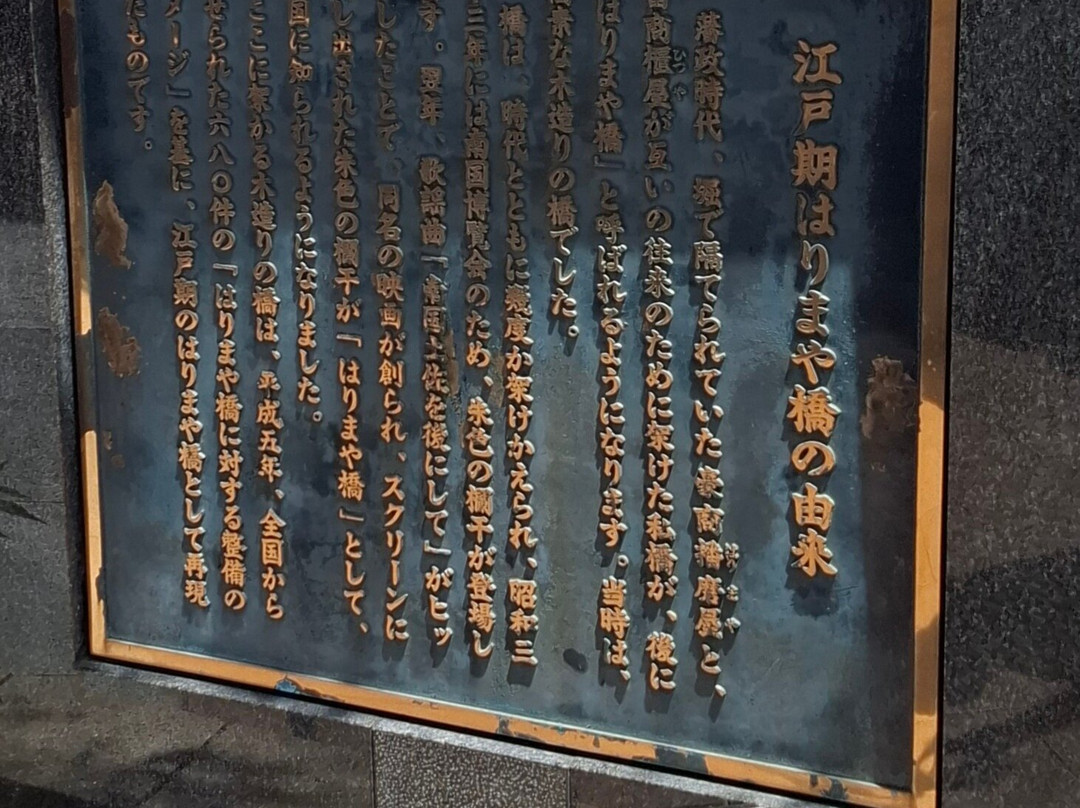 江戸期はりまや橋の由来
藩政時代、堀で隔てられていた豪商播磨屋と、
商櫃屋が互いの往来のために架けた私橋が、後に
はりまや橋」と呼ばれるようになります。当時は、
素な木造りの橋でした。
橋は、時代とともに幾度か架けかえられ、昭和三
三年には南国博覧会のため、朱色の欄干が登場し
す。翌年、歌謡曲「南国土佐を後にして」がヒッ
したことで、同名の映画が創られ、スクリーンに
し出された朱色の欄干が「はりまや橋」として、
国に知られるようになりました。
ここに架かる木造りの橋は、平成五年、全国から
せられた六八〇件の「はりまや橋に対する整備の
メージ」を基に、江戸期のはりまや橋として再現
たものです。